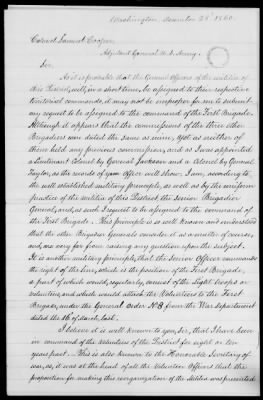 Washington December 28th 1860.
Colonel Samuel Cooper
Adjutant General U.S. Army.
Sir,
As it is probable that the General Officers of the militia of
this District, will, in a short time, be assigned to their respective
territorial commands, it may not be improper for me to submit
my request to be assigned to the command of the First Brigade.
Although it appears that the commissions of the three other
Brigadiers were dated the same as mine, yet as neither of
them held any previous commission, and as I was appointed
a Lieutenant Colonel by General Jackson and a Colonel by General
Taylor, as the records of your Office will show, I am, according to
the well established military principle, as well as by the uniform
practice of the militia of this District, the Senior Brigadier
General, and, as such I request to be assigned to the command of
the First Brigade. This principle is so well known and understood
that the other Brigadier Generals consider it as a matter of course,
and, are very far from raising any question upon the subject.
It is another military principle, that the Senior Officer commands
the right of the line, which is the position of the First Brigade,
a part of which would, regularly, consist of the Light troops or
volunteers, and which would attach the Volunteers to the First
Brigade, under the General Order No 8 from the War Department
dated the 16 of March, last.
I believe it is well known to you, Sir, that I have been
in command of the Volunteers of the District for eight or ten
years past. This is also known to the Honorable Secretary of
war, as, it was at the head of all the Volunteer Officers that the
proposition for making this reorganization of the Militia was presented